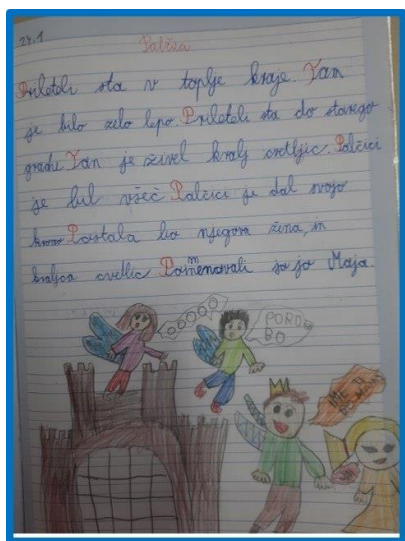 24.1
Palčica
Prileteli sta v toplje kraje. Tam
je bilo zelo lepo. Prileteli sta do starega
gradu Tam je živel kralj cvetljic. Palčici
je bil všeč Palčici je dal svojo
Postala bo njegova žena, in
kraljca cvetlic Pomenovali so jo Maja.
OOOOO
PORO
BO